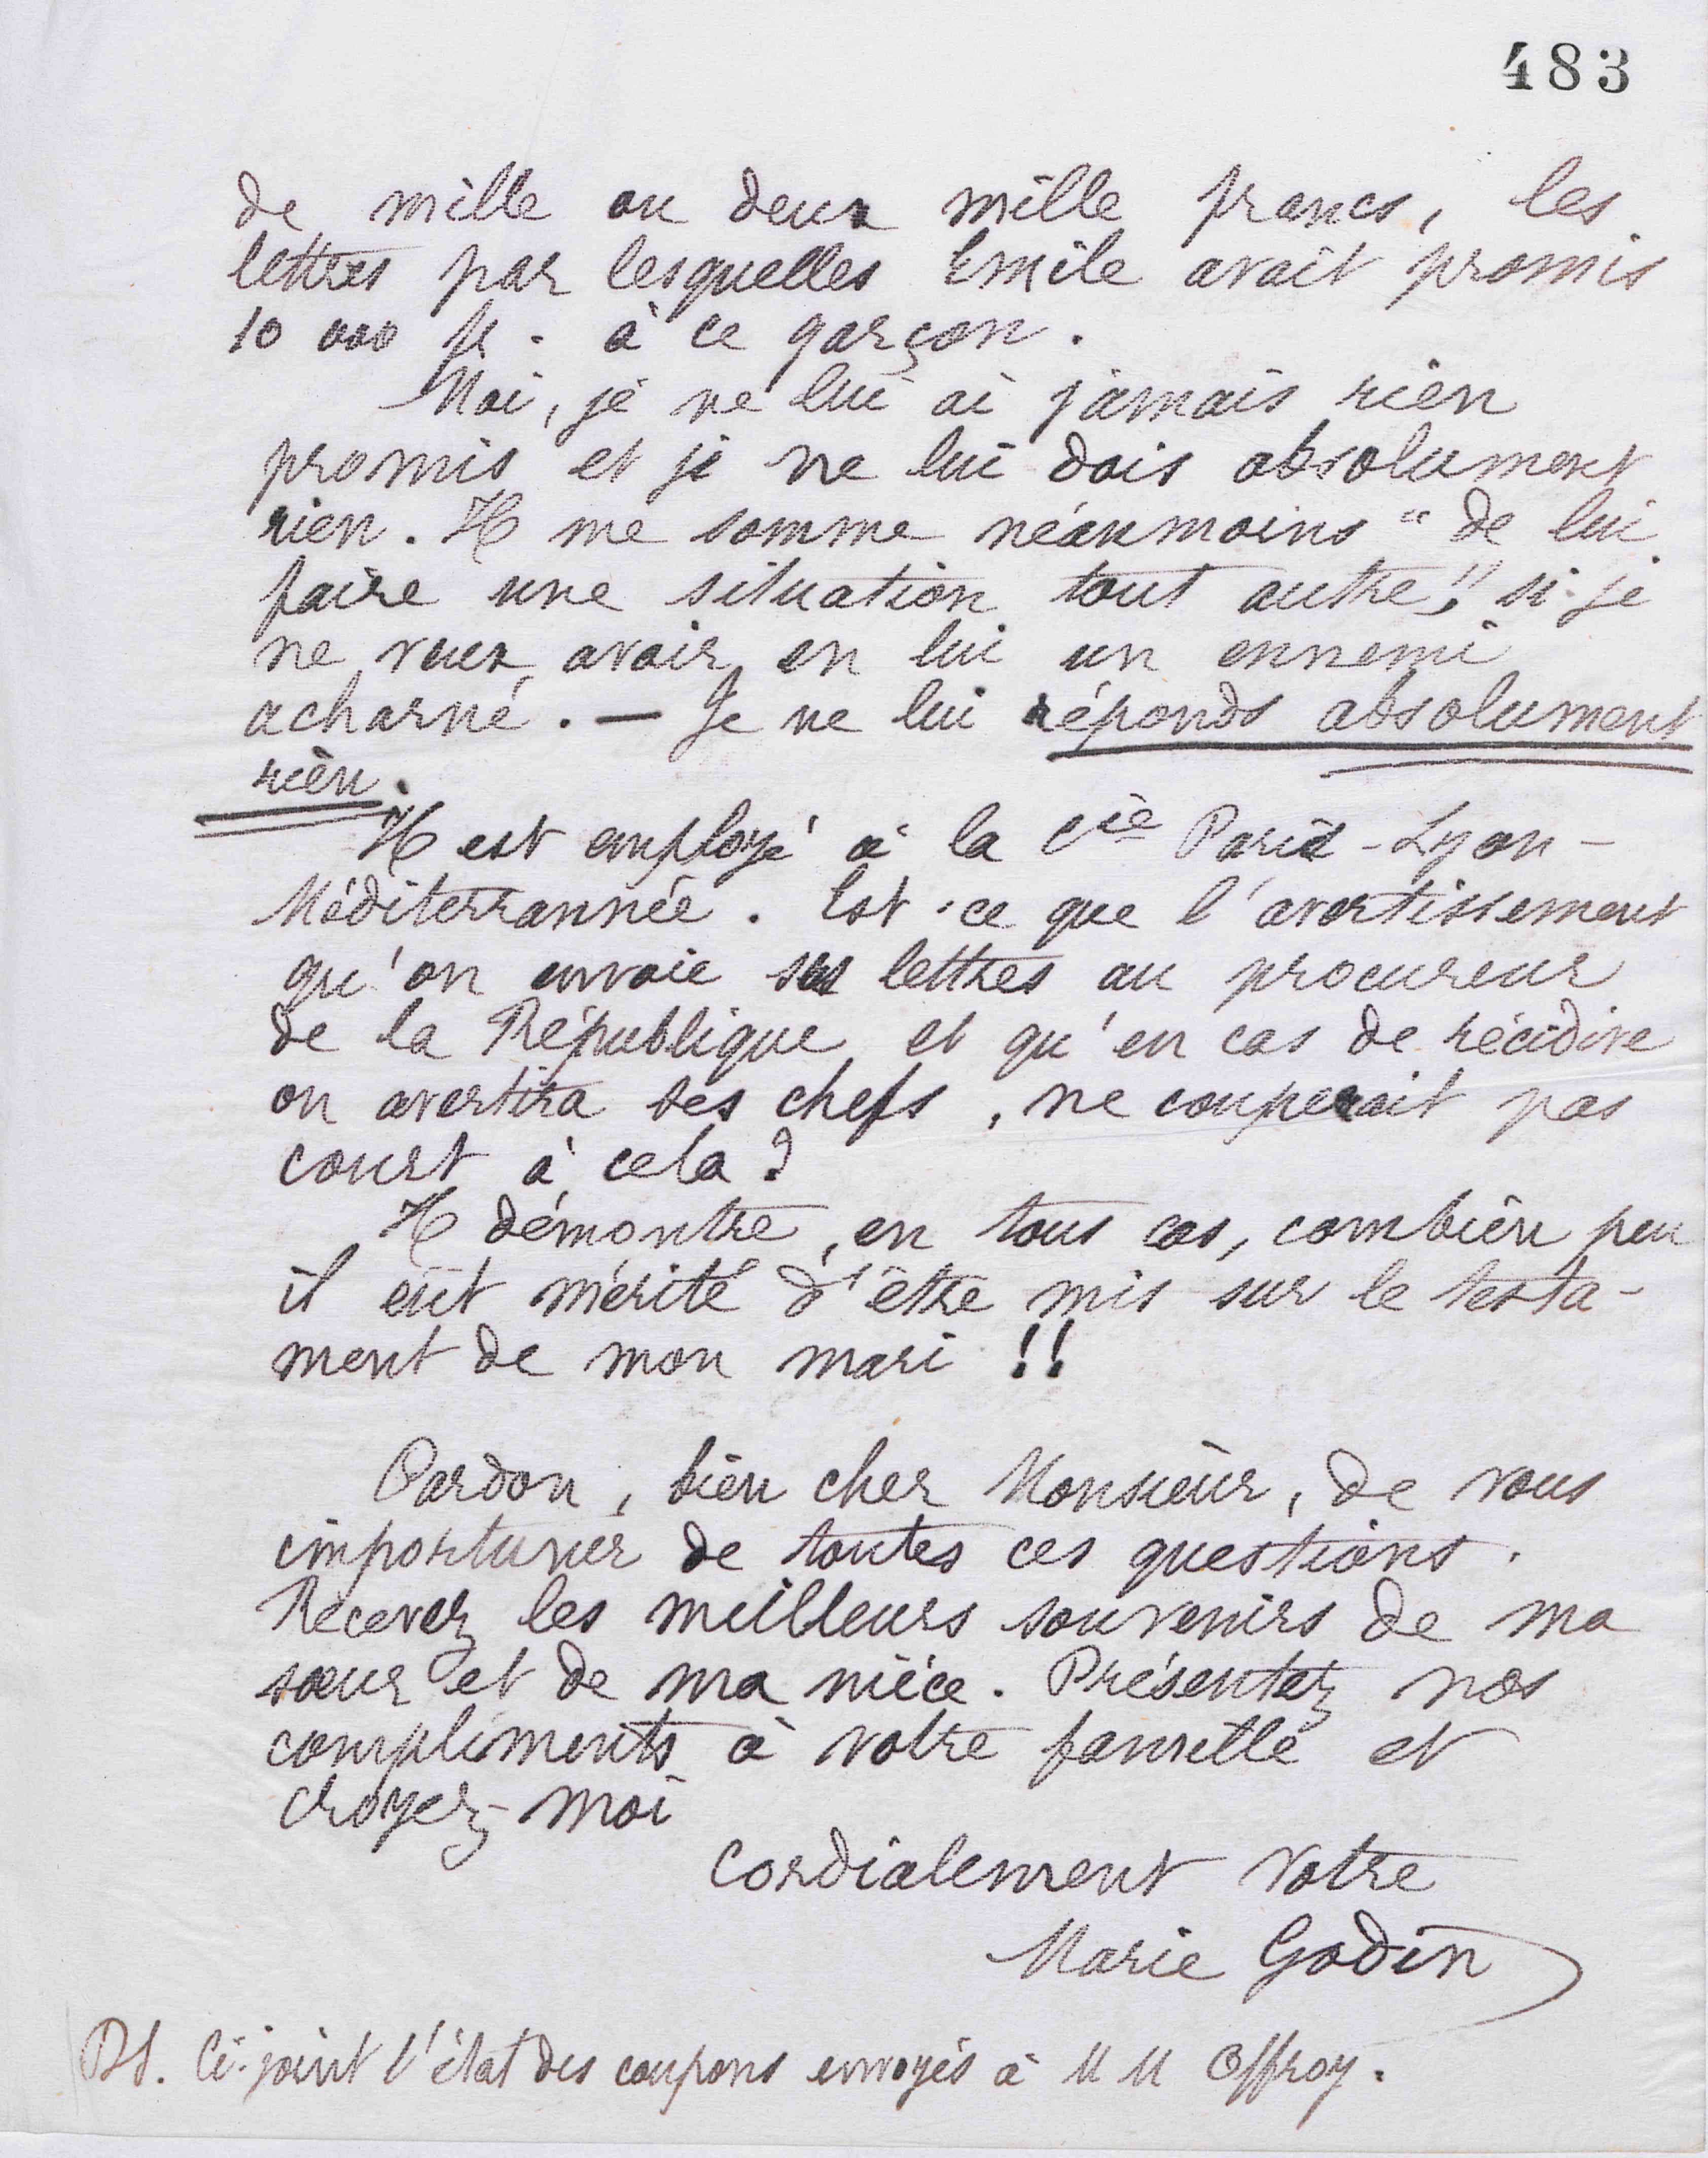 483
de mille ou deux mille francs, les
lettres par lesquelles Emile avait promis
10 000 fr. à ce garçon.
Moi, je ne lui ai jamais rien
promis et je ne lui dois absolument
rien. Il me somme néanmoins "de lui
faire une situation tout autre", si je
ne veux avoir en lui un ennemi
acharné. — Je ne lui réponds absolument
rien.
Il est employé à la Cie Paris-Lyon-
Méditerrannée. Est-ce que l'avertissement
qu'on envoie ses lettres au procureur
de la République et qu'en cas de récidive
on avertira ses chefs, ne couperait pas
court à cela ?
Il démontre, en tous cas, combien peu
il eût mérité d'être mis sur le testa-
ment de mon mari !!
Pardon, bien cher Monsieur, de vous
importuner de toutes ces questions.
Recevez les meilleurs souvenirs de ma
sœur et de ma nièce. Présentez nos
compliments à votre famille et
croyez-moi
Cordialement votre
Marie Godin
PS. Ci-joint l'état des coupons envoyés à MM Offroy.